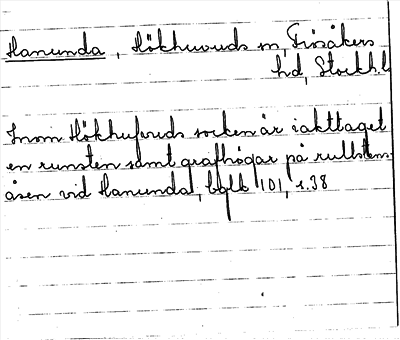 Hanunda, Hökhuvuds sn, Frösåkers
hd, Stockh. l.
Inom Hökhufvuds socken är iakttaget
en runsten samt grafhögar på rullstens-
åsen vid Hanunda, bglb 101, s. 38